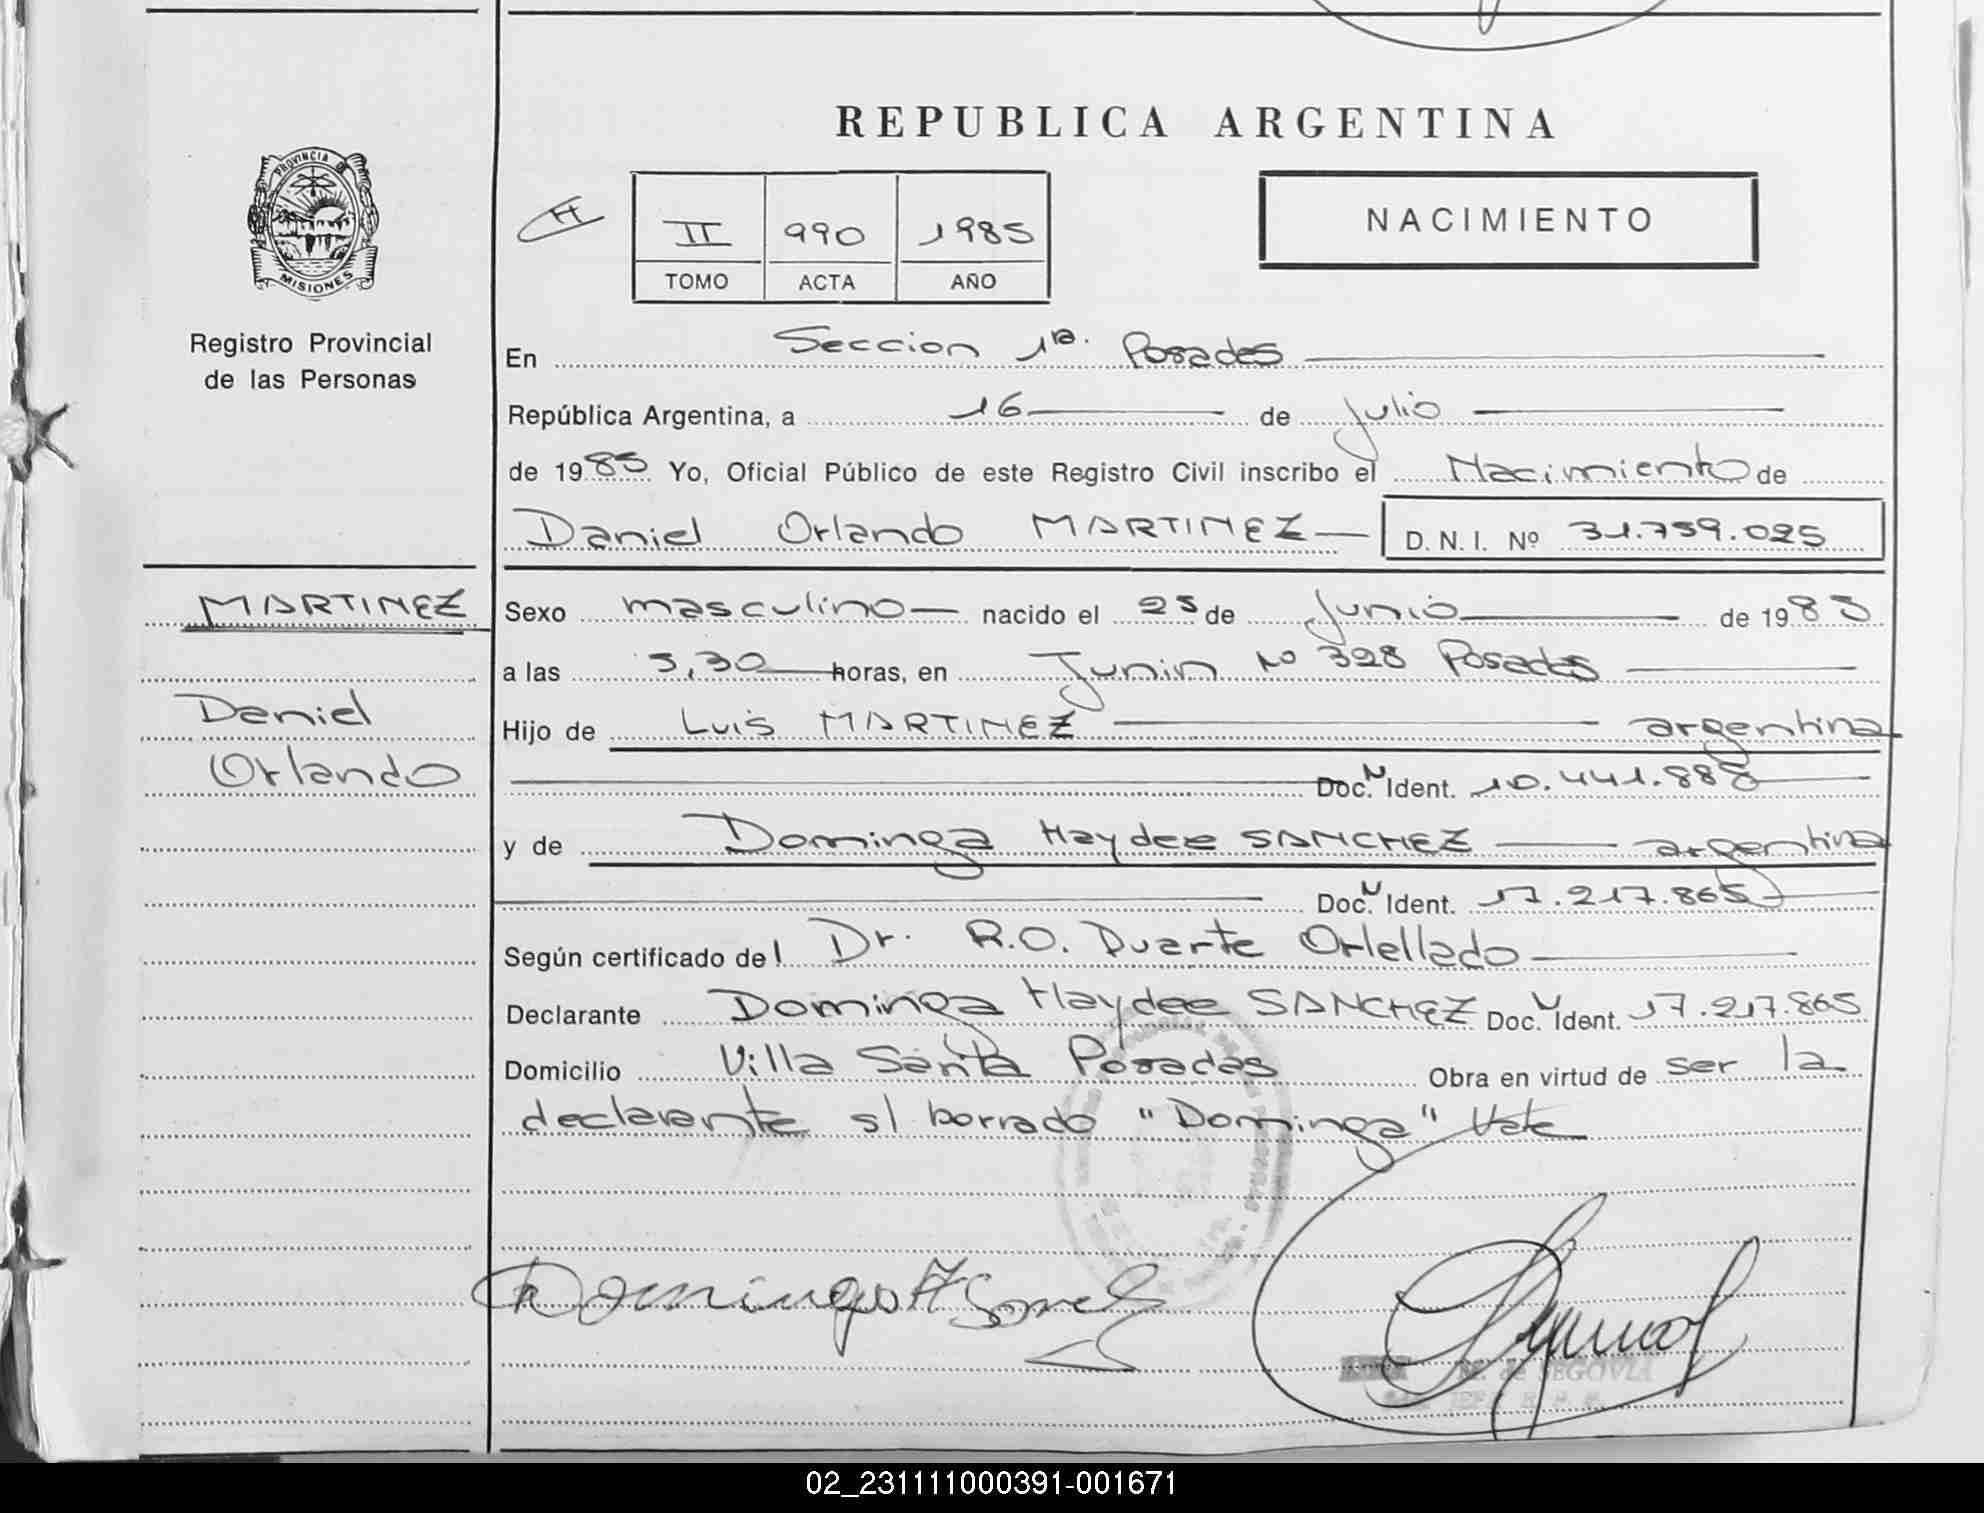 REPUBLICA ARGENTINA
PROVINCIA DE
MISIONES
Registro Provincial
de las Personas
II 990 1985
TOMO ACTA AÑO
NACIMIENTO
En Seccion 1ª. Posadas
República Argentina, a 16 de Julio
de 1985 Yo, Oficial Público de este Registro Civil inscribo el Nacimiento de
Daniel Orlando MARTINEZ D.N.I. Nº 31.759.025
MARTINEZ
Daniel
Orlando
Sexo masculino nacido el 25 de Junio de 1985
a las 5,30 horas, en Junin Nº 328 Posadas
Hijo de Luis MARTINEZ argentina
Doc. N Ident. 10.441.888
y de Dominga Haydee SANCHEZ argentina
Doc. N Ident. 17.217.865
Según certificado del Dr. R.O. Duarte Ortellado
Declarante Dominga Haydee SANCHEZ Doc. N Ident. 17.217.865
Domicilio Villa Santa Posadas Obra en virtud de ser la
declarante s/ borrado "Dominga" Vale
M. de SEGOVIA
02_231111000391-001671